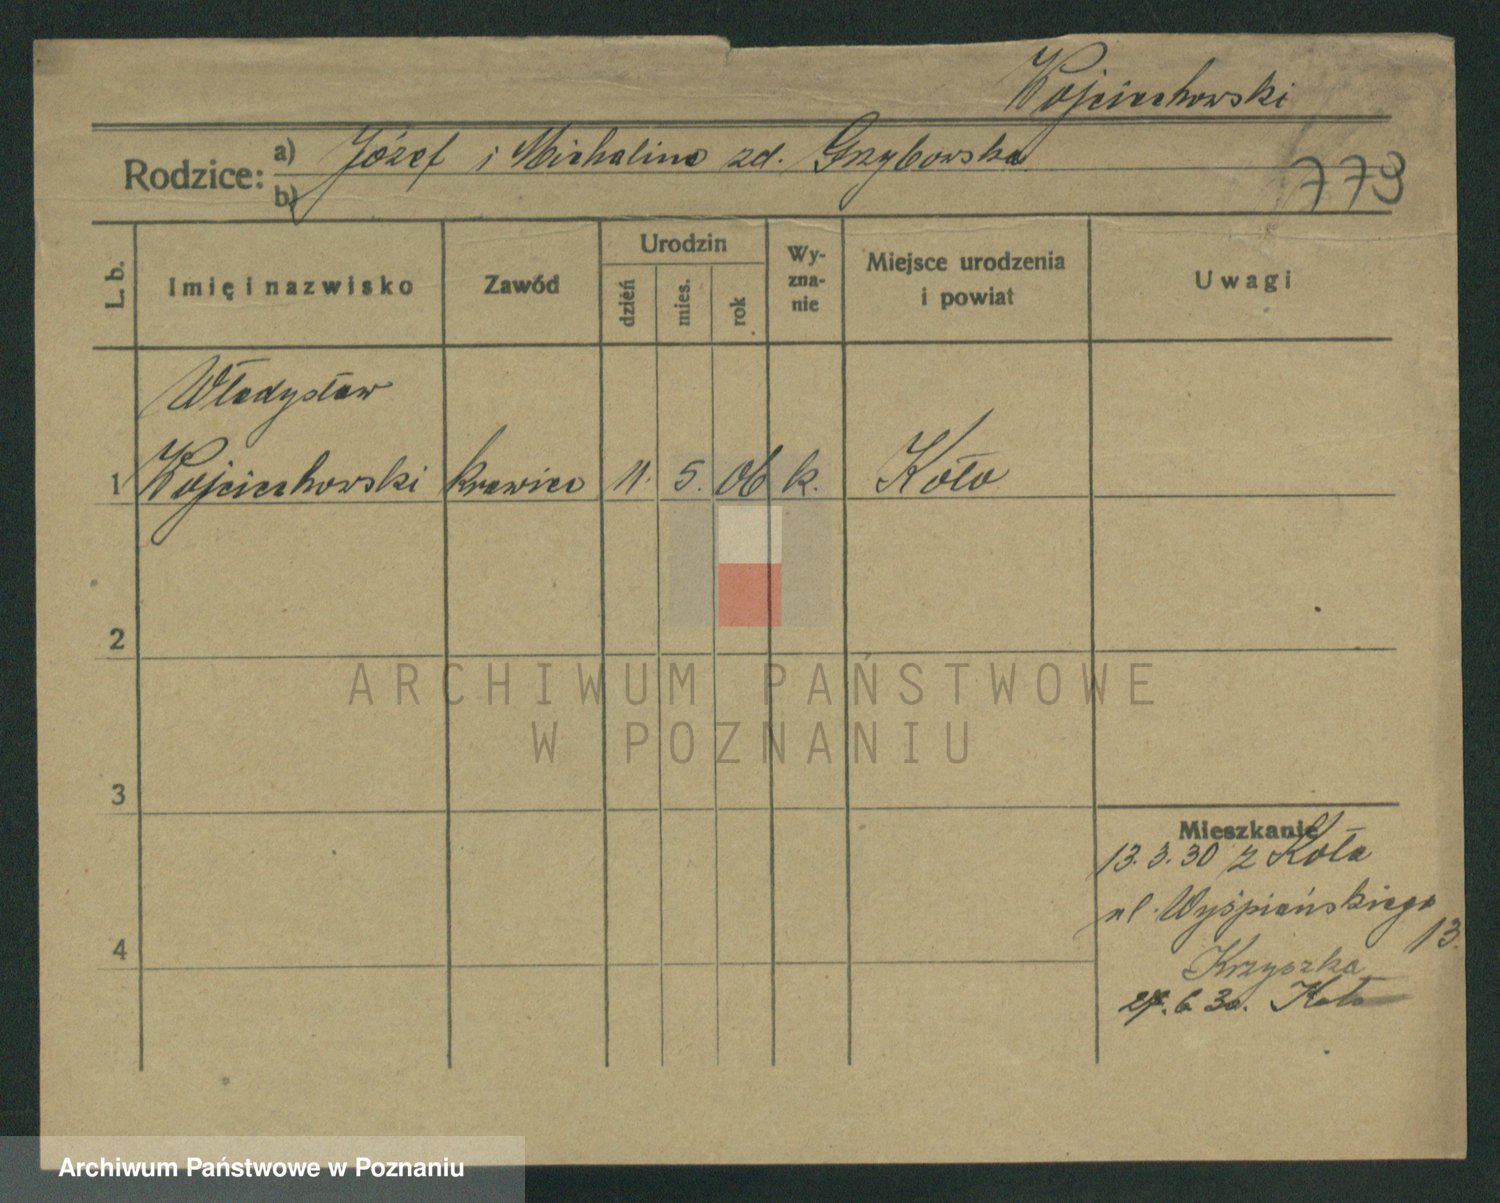 Wojciechowski
Rodzice: a) Józef i Michalina zd. Grzybowska
b)
773
L. b.
Imię i nazwisko
Zawód
Urodzin
dzień
mies.
rok
Wy-
zna-
nie
Miejsce urodzenia
i powiat
Uwagi
Władysław
1 Wojciechowski krawiec 11. 5. 06 k. Koło
2
3
4
Mieszkanie
13.3.30 z Koła
ul. Wyśpiańskiego
13.
Krzyszka
27.6.30. Koło
ARCHIWUM PAŃSTWOWE
W POZNANIU
Archiwum Państwowe w Poznaniu